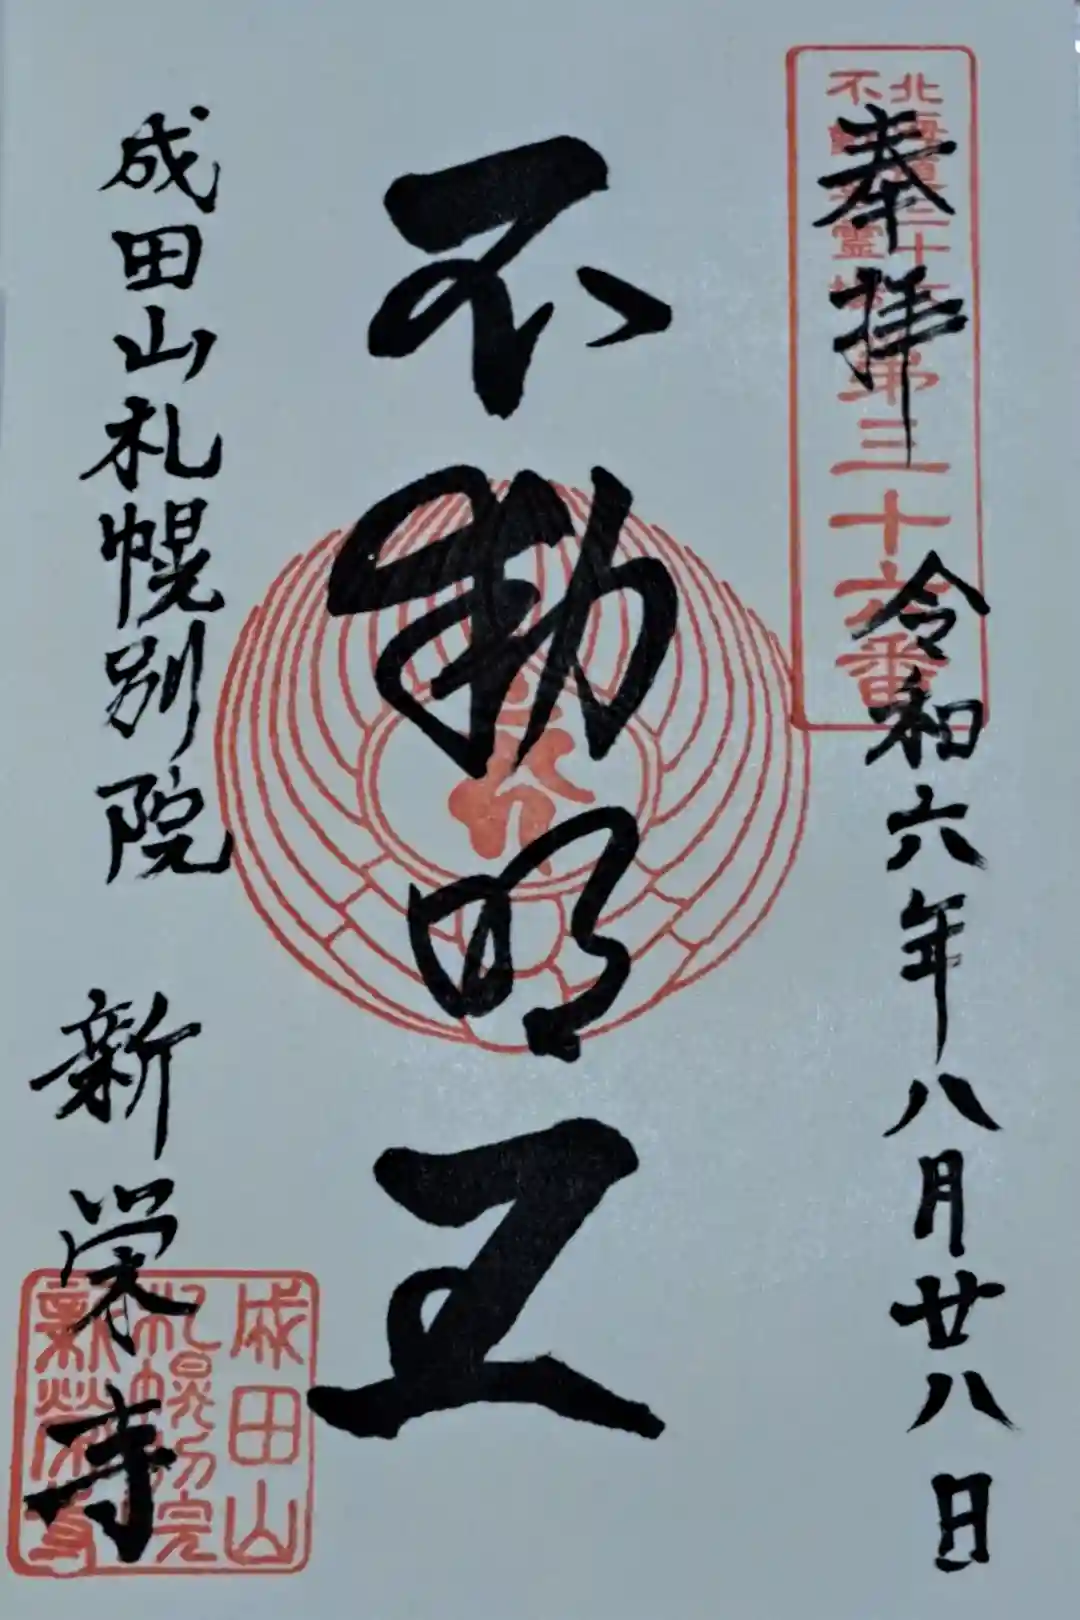 奉拝
令和六年八月廿八日
北海道三十六
不動尊霊場
第三十六番
不動明王
成田山札幌別院
新栄寺
成田山
札幌別院
新栄寺